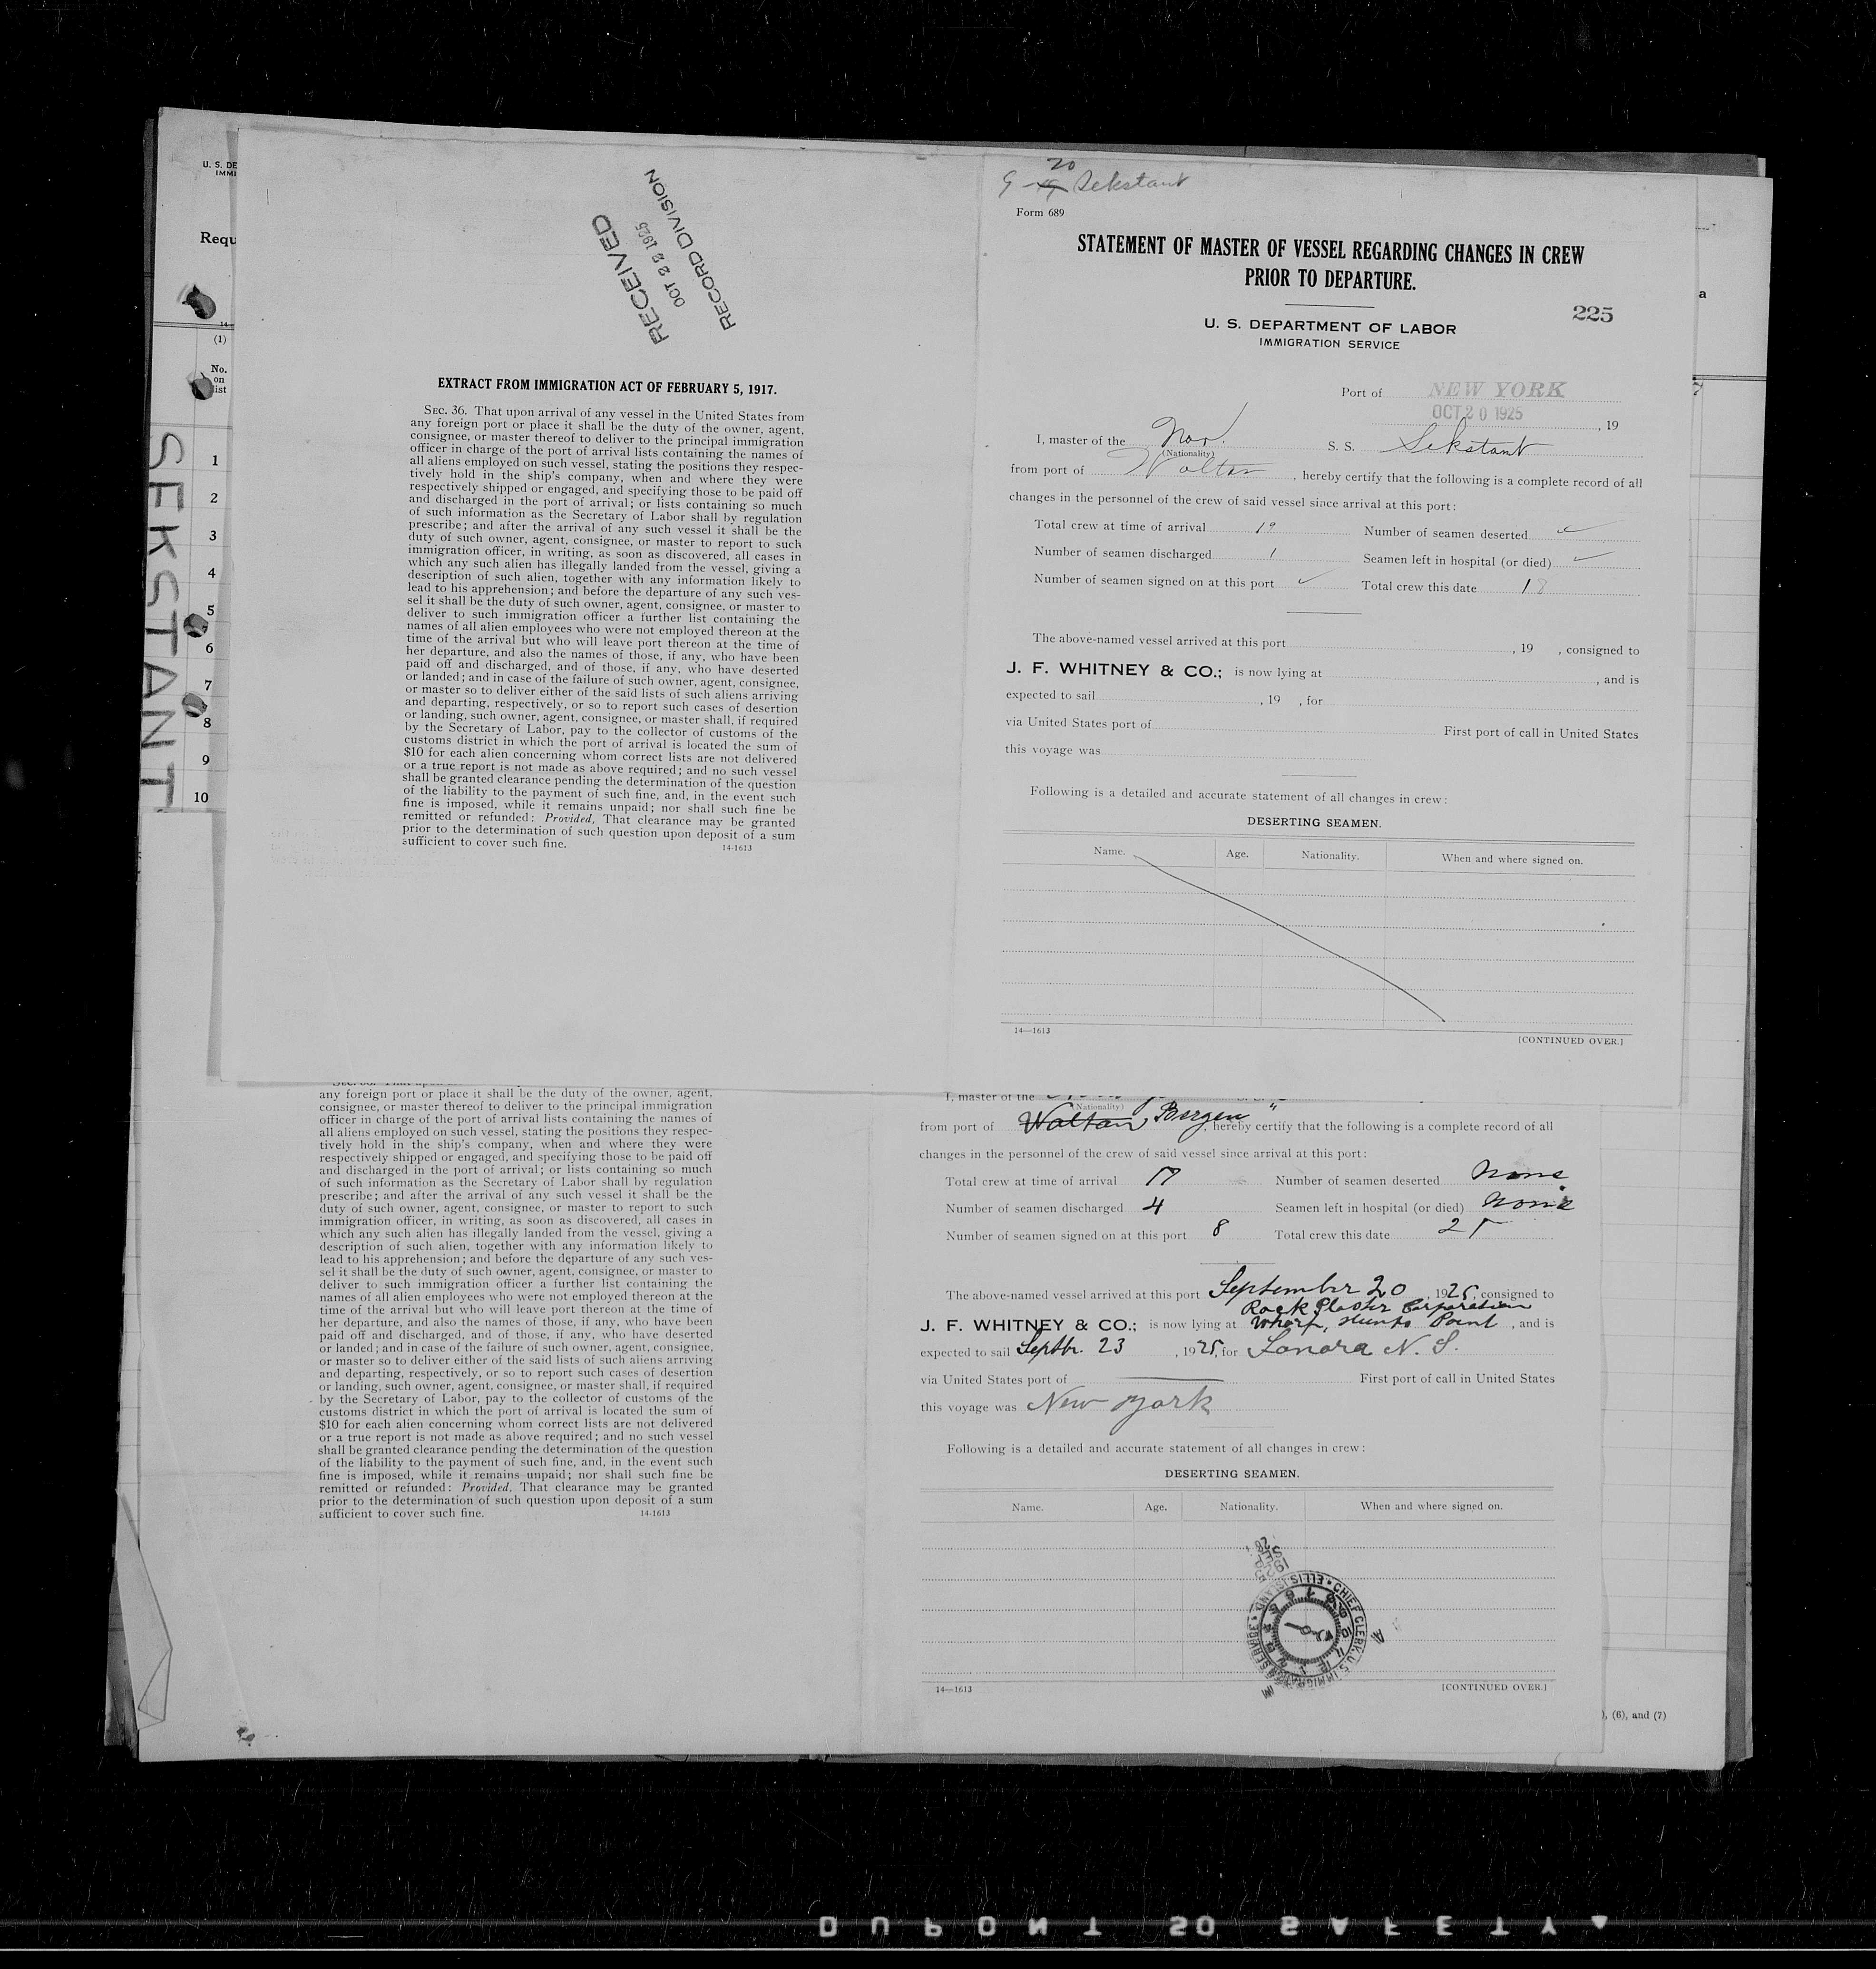 U. S. DE
IMMI
Requ
14—
(1)
No.
on
list
1
2
3
4
5
6
7
8
9
10
SEKSTANT
RECEIVED
OCT 22 1925
RECORD DIVISION
EXTRACT FROM IMMIGRATION ACT OF FEBRUARY 5, 1917.
SEC. 36. That upon arrival of any vessel in the United States from
any foreign port or place it shall be the duty of the owner, agent,
consignee, or master thereof to deliver to the principal immigration
officer in charge of the port of arrival lists containing the names of
all aliens employed on such vessel, stating the positions they respec-
tively hold in the ship's company, when and where they were
respectively shipped or engaged, and specifying those to be paid off
and discharged in the port of arrival; or lists containing so much
of such information as the Secretary of Labor shall by regulation
prescribe; and after the arrival of any such vessel it shall be the
duty of such owner, agent, consignee, or master to report to such
immigration officer, in writing, as soon as discovered, all cases in
which any such alien has illegally landed from the vessel, giving a
description of such alien, together with any information likely to
lead to his apprehension; and before the departure of any such ves-
sel it shall be the duty of such owner, agent, consignee, or master to
deliver to such immigration officer a further list containing the
names of all alien employees who were not employed thereon at the
time of the arrival but who will leave port thereon at the time of
her departure, and also the names of those, if any, who have been
paid off and discharged, and of those, if any, who have deserted
or landed; and in case of the failure of such owner, agent, consignee,
or master so to deliver either of the said lists of such aliens arriving
and departing, respectively, or so to report such cases of desertion
or landing, such owner, agent, consignee, or master shall, if required
by the Secretary of Labor, pay to the collector of customs of the
customs district in which the port of arrival is located the sum of
$10 for each alien concerning whom correct lists are not delivered
or a true report is not made as above required; and no such vessel
shall be granted clearance pending the determination of the question
of the liability to the payment of such fine, and, in the event such
fine is imposed, while it remains unpaid; nor shall such fine be
remitted or refunded: Provided, That clearance may be granted
prior to the determination of such question upon deposit of a sum
sufficient to cover such fine.
14-1613
20
9 - Sekstant
Form 689
STATEMENT OF MASTER OF VESSEL REGARDING CHANGES IN CREW
PRIOR TO DEPARTURE.
225
U. S. DEPARTMENT OF LABOR
IMMIGRATION SERVICE
Port of NEW YORK
OCT 20 1925 , 19
I, master of the Nor. S. S. Sekstant
(Nationality)
from port of Walton , hereby certify that the following is a complete record of all
changes in the personnel of the crew of said vessel since arrival at this port:
Total crew at time of arrival 19 Number of seamen deserted
Number of seamen discharged 1 Seamen left in hospital (or died)
Number of seamen signed on at this port Total crew this date 18
The above-named vessel arrived at this port , 19 , consigned to
J. F. WHITNEY & CO.; is now lying at , and is
expected to sail , 19 , for
via United States port of First port of call in United States
this voyage was
Following is a detailed and accurate statement of all changes in crew:
DESERTING SEAMEN.
Name. Age. Nationality. When and where signed on.
14—1613 [CONTINUED OVER.]
a
7
any foreign port or place it shall be the duty of the owner, agent,
consignee, or master thereof to deliver to the principal immigration
officer in charge of the port of arrival lists containing the names of
all aliens employed on such vessel, stating the positions they respec-
tively hold in the ship's company, when and where they were
respectively shipped or engaged, and specifying those to be paid off
and discharged in the port of arrival; or lists containing so much
of such information as the Secretary of Labor shall by regulation
prescribe; and after the arrival of any such vessel it shall be the
duty of such owner, agent, consignee, or master to report to such
immigration officer, in writing, as soon as discovered, all cases in
which any such alien has illegally landed from the vessel, giving a
description of such alien, together with any information likely to
lead to his apprehension; and before the departure of any such ves-
sel it shall be the duty of such owner, agent, consignee, or master to
deliver to such immigration officer a further list containing the
names of all alien employees who were not employed thereon at the
time of the arrival but who will leave port thereon at the time of
her departure, and also the names of those, if any, who have been
paid off and discharged, and of those, if any, who have deserted
or landed; and in case of the failure of such owner, agent, consignee,
or master so to deliver either of the said lists of such aliens arriving
and departing, respectively, or so to report such cases of desertion
or landing, such owner, agent, consignee, or master shall, if required
by the Secretary of Labor, pay to the collector of customs of the
customs district in which the port of arrival is located the sum of
$10 for each alien concerning whom correct lists are not delivered
or a true report is not made as above required; and no such vessel
shall be granted clearance pending the determination of the question
of the liability to the payment of such fine, and, in the event such
fine is imposed, while it remains unpaid; nor shall such fine be
remitted or refunded: Provided, That clearance may be granted
prior to the determination of such question upon deposit of a sum
sufficient to cover such fine.
14-1613
I, master of the
(Nationality)
from port of Walton, Bergen , hereby certify that the following is a complete record of all
changes in the personnel of the crew of said vessel since arrival at this port:
Total crew at time of arrival 17 Number of seamen deserted None
Number of seamen discharged 4 Seamen left in hospital (or died) None
Number of seamen signed on at this port 8 Total crew this date 21
The above-named vessel arrived at this port September 20 , 1925, consigned to
Rock Plaster Corporation
J. F. WHITNEY & CO.; is now lying at Wharf, Hunts Point , and is
expected to sail Septbr. 23 , 1925, for N. S.
via United States port of First port of call in United States
this voyage was New York
Following is a detailed and accurate statement of all changes in crew:
DESERTING SEAMEN.
Name. Age. Nationality. When and where signed on.
CHIEF CLERK, U.S. IMMIGRATION SERVICE • ELLIS ISLAND
14—1613 [CONTINUED OVER.]
), (6), and (7)
DUPONT 50 SAFETY